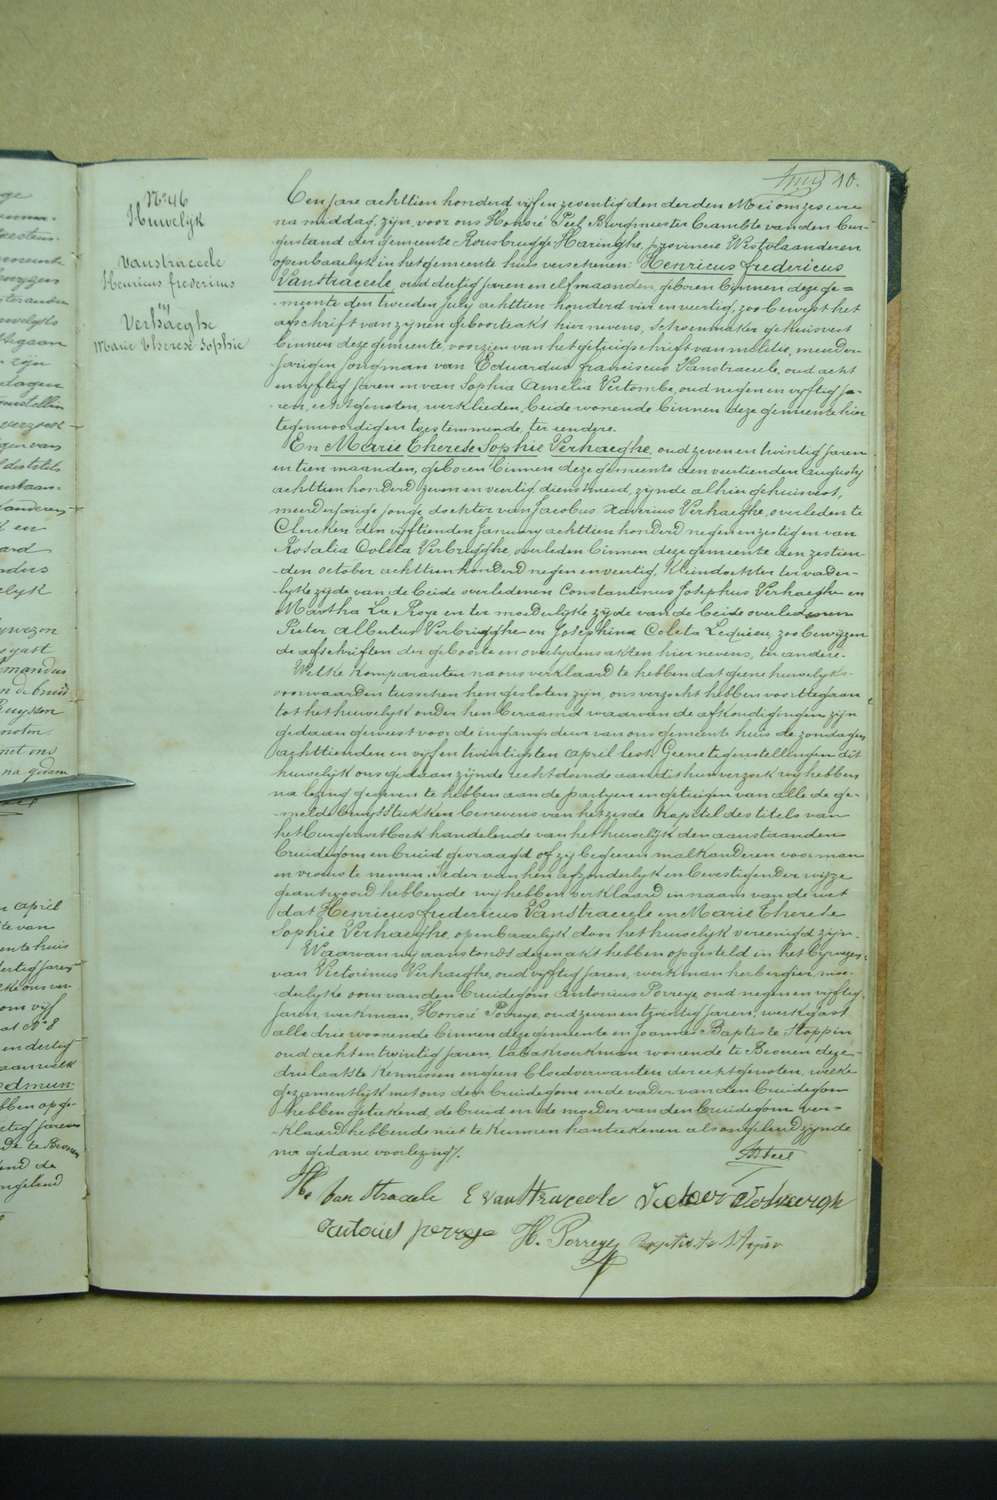 10.
N° 46
Huwelyk
Vanstraceele
Henricus fredericus
en
Verhaeghe
Marie Therese Sophie
Een jare achttien honderd vyf en zeventig den derden Mei om zes ure
na middag, zyn, voor ons Honoré Peel Burgmeester Beambte van den Bur-
gerstand der gemeente Rousbrugge Haringhe, provincie Westvlaanderen
openbaarlyk in het gemeente huis verschenen Henricus fredericus
Vanstraceele, oud dertig jaren en elf maanden, geboren binnen deze ge=
meente den tweeden July achttien honderd vier en veertig, zoo bewyst het
afschrift van zynen geboorteakt hiernevens, schoenmaker gehuisvest
binnen deze gemeente, voorzien van het getuigschrift van militie, meerder-
jarigen jongman van Eduardus franciscus Vanstraceele, oud acht
en vyftig jaren en van Sophia Amelia Vertombe, oud negen en vyftig ja-
ren, echtgenoten, werklieden, beide wonende binnen deze gemeente hier
tegenwoordig en toestemmende, ter eendere.
En Marie Therese Sophie Verhaeghe, oud zeven en twintig jaren
en tien maanden, geboren binnen deze gemeente den veertienden augusty
achttien honderd zeven en veertig, dienstmeid, zynde alhier gehuisvest,
meerderjarige jonge dochter van Jacobus Xaverius Verhaeghe, overleden te
Clercken den vyftienden January achttien honderd negen en zestig en van
Rosalia Coleta Verbrigghe, overleden binnen deze gemeente den zestien-
den october achttien honderd negen en veertig, kleindochter ter vader-
lyke zyde van de beide overledenen Constantinus Josephus Verhaeghe en
Martha Le Roye en ter moederlyke zyde van de beide overledenen
Pieter Albertus Verbrigghe en Josephina Coleta Lequieu, zoo bewyzen
de afschriften der geboorte en overlydensakten hiernevens, ter andere.
Welke komparanten na ons verklaard te hebben dat geene huwelyks-
voorwaarden tusschen hen gesloten zyn, ons verzocht hebben voort te gaan
tot het huwelyk onder hen beraamd waarvan de afkondigingen zyn
gedaan geweest voor de ingangdeur van ons gemeente huis de zondagen
achttienden en vyf en twintigsten april lest. Geene tegenstellingen dit
huwelyk ons gedaan zynde, recht doende aan dit hun verzoek wy hebben
na lezing gegeven te hebben aan de partyen en getuigen van alle de ge-
melde bewysstukken benevens van het zesde kapittel des titels van
het burgerwetboek handelende van het huwelyk den aanstaanden
bruidegom en bruid gevraagd of zy begeeren malkanderen voor man
en vrouw te nemen. Ieder van hen afzonderlyk en bevestigender wyze
geantwoord hebbende wy hebben verklaard in naam van de wet
dat Henricus fredericus Vanstraceele en Marie Therese
Sophie Verhaeghe, openbaarlyk door het huwelyk vereenigd zyn.
Waarvan wy aanstonds dezen akt hebben opgesteld in het bywezen
van Victorinus Verhaeghe, oud vyftig jaren, werkman herbergier, moe-
derlyke oom van den bruidegom Antonius Porreye, oud negen en vyftig
jaren, werkman, Honoré Porreye, oud zeven en twintig jaren, werkgast
alle drie woonende binnen deze gemeente en Joannes Baptiste Stoppin
oud acht en twintig jaren, tabakwerkman wonende te Beveren deze
drie laatste kennissen en geen bloedverwanten der echtgenoten, welke
gezamentlyk met ons den bruidegom en de vader van den bruidegom
hebben geteekend, de bruid en de moeder van den bruidegom ver=
klaard hebbende niet te kunnen hanteekenen als ongeleerd zynde
na gedane voorlezing/.
H. Peel
H. Van Straceele E Van Straceele
antonius porreye H. Porreye